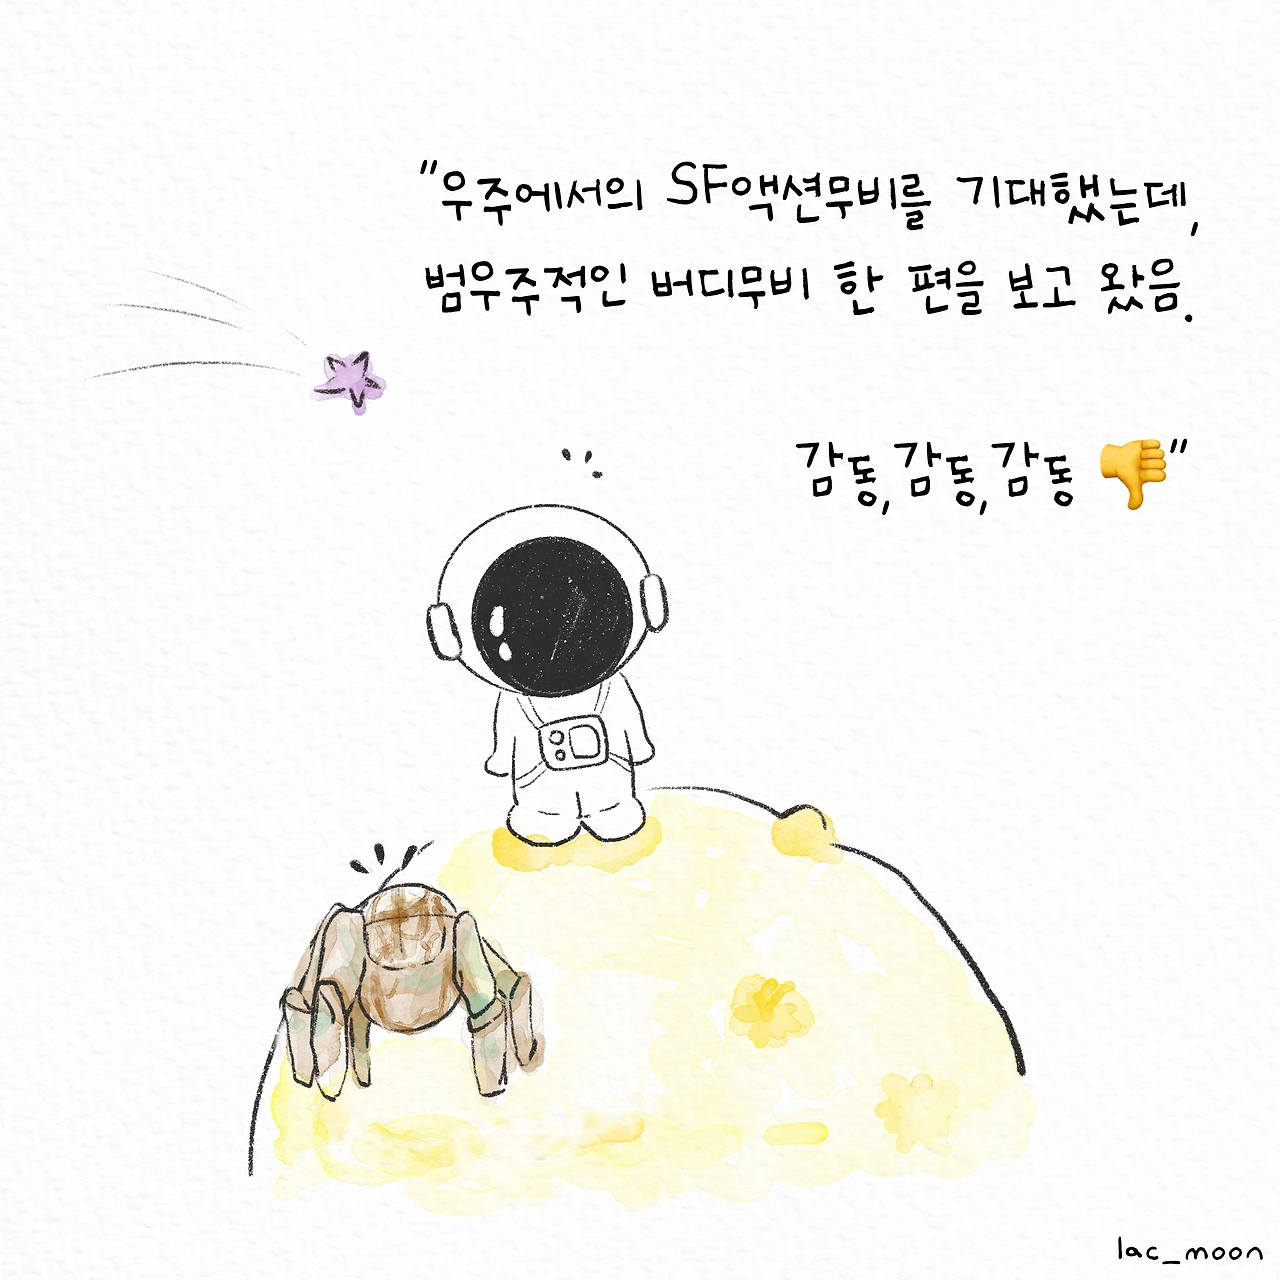 "우주에서의 SF액션무비를 기대했는데,
범우주적인 버디무비 한 편을 보고 왔음.
감동, 감동, 감동 👎"
lac_moon